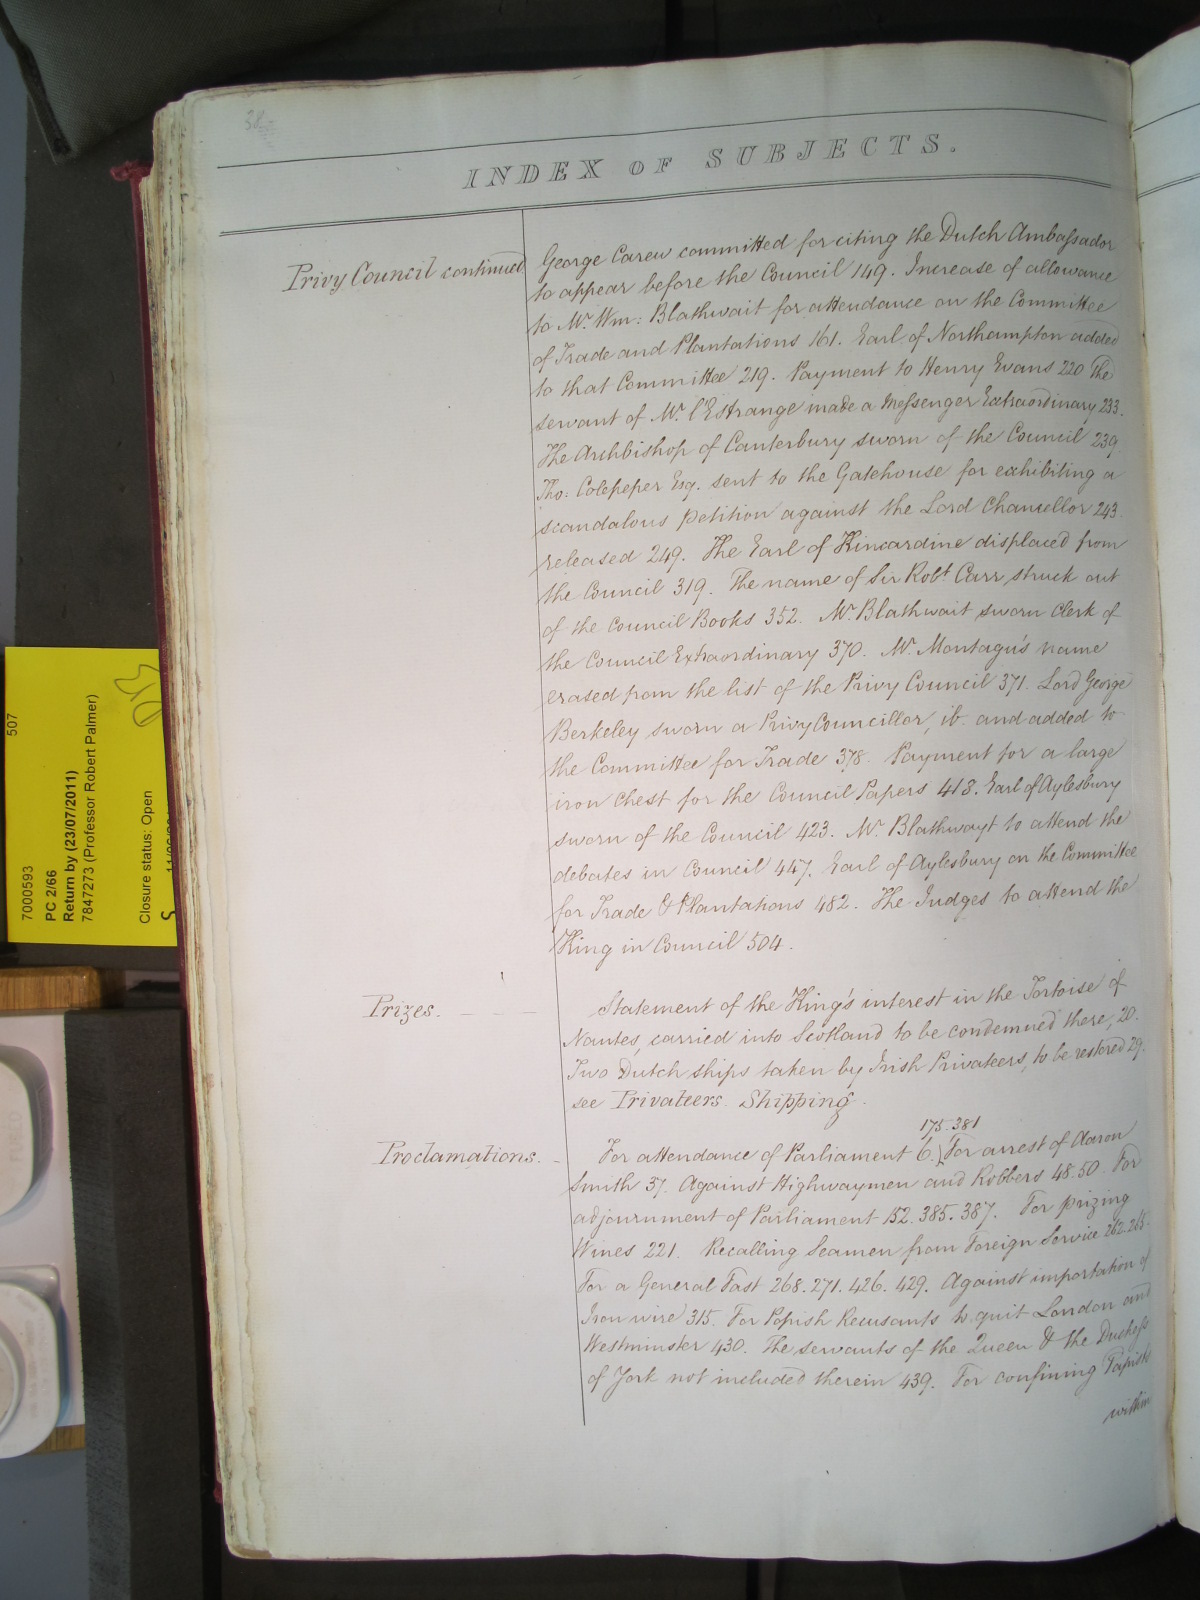 INDEX OF SUBJECTS.
Privy Council continued
George Carew committed for citing the Dutch Ambassador
to appear before the Council 149. Increase of allowance
to Mr. Wm: Blathwait for attendance on the Committee
of Trade and Plantations 161. Earl of Northampton added
to that Committee 219. Payment to Henry Evans 220 The
servant of Mr. l'Estrange made a Messenger Extraordinary 233.
The Archbishop of Canterbury sworn of the Council 239
Tho: Colepeper Esq. sent to the Gatehouse for exhibiting a
scandalous petition against the Lord Chancellor 243
released 249. The Earl of Kincardine displaced from
the Council 319. The name of Sir Robt Carr struck out
of the Council Books 352. Mr. Blathwait sworn Clerk of
the Council Extraordinary 370. Mr. Montagu's name
erased from the list of the Privy Council 371. Lord George
Berkeley sworn a Privy Councillor, ib. and added to
the Committee for Trade 378. Payment for a large
iron Chest for the Council Papers 418. Earl of Aylesbury
sworn of the Council 423. Mr. Blathwayt to attend the
debates in Council 447. Earl of Aylesbury on the Committee
for Trade & Plantations 482. The Judges to attend the
King in Council 504.
Prizes.
Statement of the King's interest in the Tortoise of
Nantes, carried into Scotland to be condemned there, 20.
Two Dutch ships taken by Irish Privateers, to be restored 29.
see Privateers. Shipping.
175. 381
Proclamations.
For attendance of Parliament 6.) For arrest of Aaron
Smith 37. Against Highwaymen and Robbers 48.50. For
adjournment of Parliament 152. 385. 387. For prizing
Wines 221. Recalling Seamen from Foreign Service 262.265.
For a General Fast 268. 271. 426. 429. Against importation of
Iron wire 315. For Popish Recusants to quit London and
Westminster 430. The servants of the Queen & the Duchess
of York not included therein 439. For confining Papists
within
507
7000593
PC 2/66
Return by (23/07/2011)
7847273 (Professor Robert Palmer)
Closure status: Open